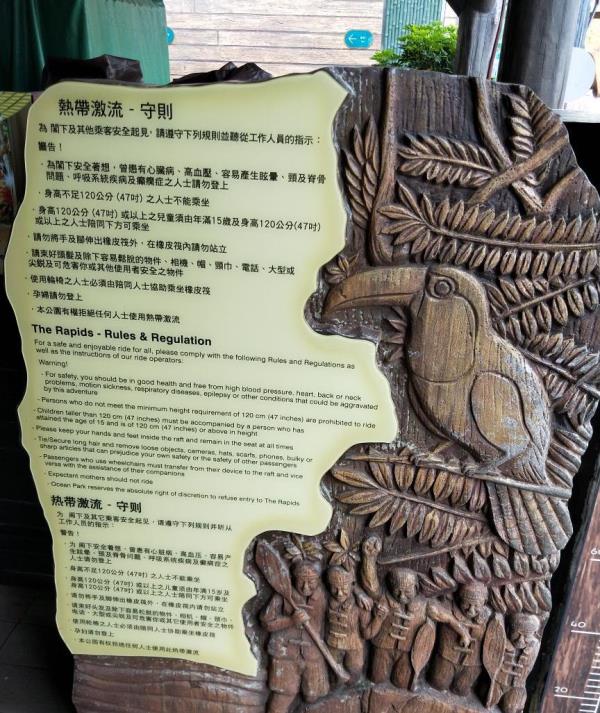 熱帶激流 - 守則
為 閣下及其他乘客安全起見, 請遵守下列規則並聽從工作人員的指示：
警告！
· 為閣下安全著想，曾患有心臟病、高血壓、容易產生眩暈、頸及脊骨
問題、呼吸系統疾病及癲癇症之人士請勿登上
· 身高不足120公分 (47吋) 之人士不能乘坐
· 身高120公分 (47吋) 或以上之兒童須由年滿15歲及身高120公分(47吋)
或以上之人士陪同下方可乘坐
· 請勿將手及腳伸出橡皮筏外，在橡皮筏內請勿站立
· 請束好頭髮及除下容易鬆脫的物件、相機、帽、頸巾、電話、大型或
尖銳及可危害你或其他使用者安全之物件
· 使用輪椅之人士必須由陪同人士協助乘坐橡皮筏
· 孕婦請勿登上
· 本公園有權拒絕任何人士使用熱帶激流
The Rapids - Rules & Regulation
For a safe and enjoyable ride for all, please comply with the following Rules and Regulations as
well as the instructions of our ride operators:
Warning!
- For safety, you should be in good health and free from high blood pressure, heart, back or neck
problems, motion sickness, respiratory diseases, epilepsy or other conditions that could be aggravated
by this adventure
- Persons who do not meet the minimum height requirement of 120 cm (47 inches) are prohibited to ride
- Children taller than 120 cm (47 inches) must be accompanied by a person who has
attained the age of 15 and is of 120 cm (47 inches) or above in height
- Please keep your hands and feet inside the raft and remain in the seat at all times
- Tie/Secure long hair and remove loose objects, cameras, hats, scarfs, phones, bulky or
sharp articles that can prejudice your own safety or the safety of other passengers
- Passengers who use wheelchairs must transfer from their device to the raft and vice
versa with the assistance of their companions
- Expectant mothers should not ride
- Ocean Park reserves the absolute right of discretion to refuse entry to The Rapids
热带激流 - 守则
为 阁下及其它乘客安全起见，请遵守下列规则并听从
工作人员的指示：
警告！
· 为 阁下安全着想，曾患有心脏病、高血压、容易产
生眩晕、颈及脊骨问题、呼吸系统疾病及癫痫症之
人士请勿登上
· 身高不足120公分 (47吋) 之人士不能乘坐
· 身高120公分 (47吋) 或以上之儿童须由年满15岁及
身高120公分 (47吋) 或以上之人士陪同下方可乘坐
· 请勿将手及脚伸出橡皮筏外，在橡皮筏内请勿站立
· 请束好头发及除下容易松脱的物件、相机、帽、颈巾、
电话、大型或尖锐及可危害你或其它使用者安全之物件
· 使用轮椅之人士必须由陪同人士协助乘坐橡皮筏
· 孕妇请勿登上
· 本公园有权拒绝任何人士使用此热带激流
60
40
20